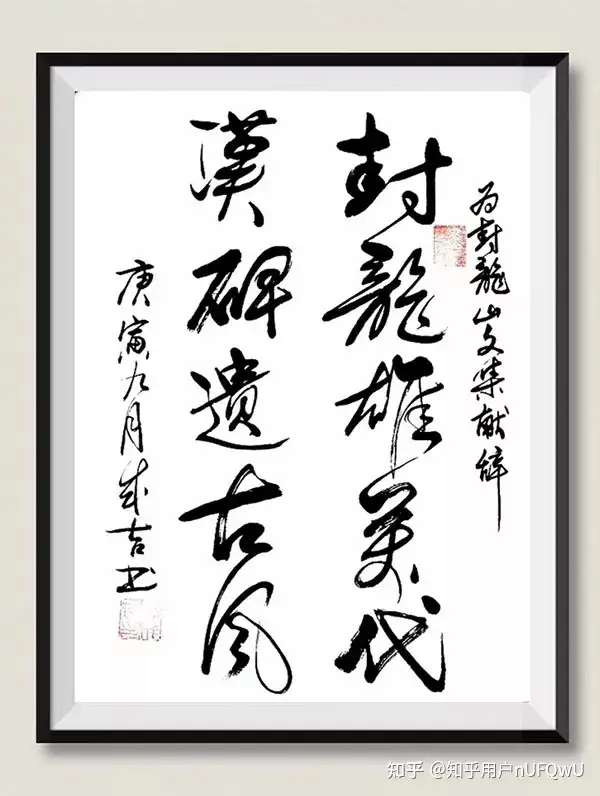 为封龍山文集献辞
封龍雄萬代
漢碑遺古风
庚寅九月成吉书
知乎 @知乎用户nUFQwU